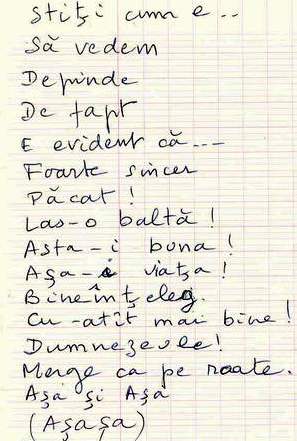 Stiţi cum e..
Să vedem
Depinde
De fapt
E evident că...
Foarte sincer
Păcat !
Las-o baltă !
Asta-i buna !
Aşa-i viaţa !
Bineînţeleg.
Cu-atît mai bine !
Dumnezeule!
Merge ca pe roate.
Aşa şi Aşa
(Aşaşa)